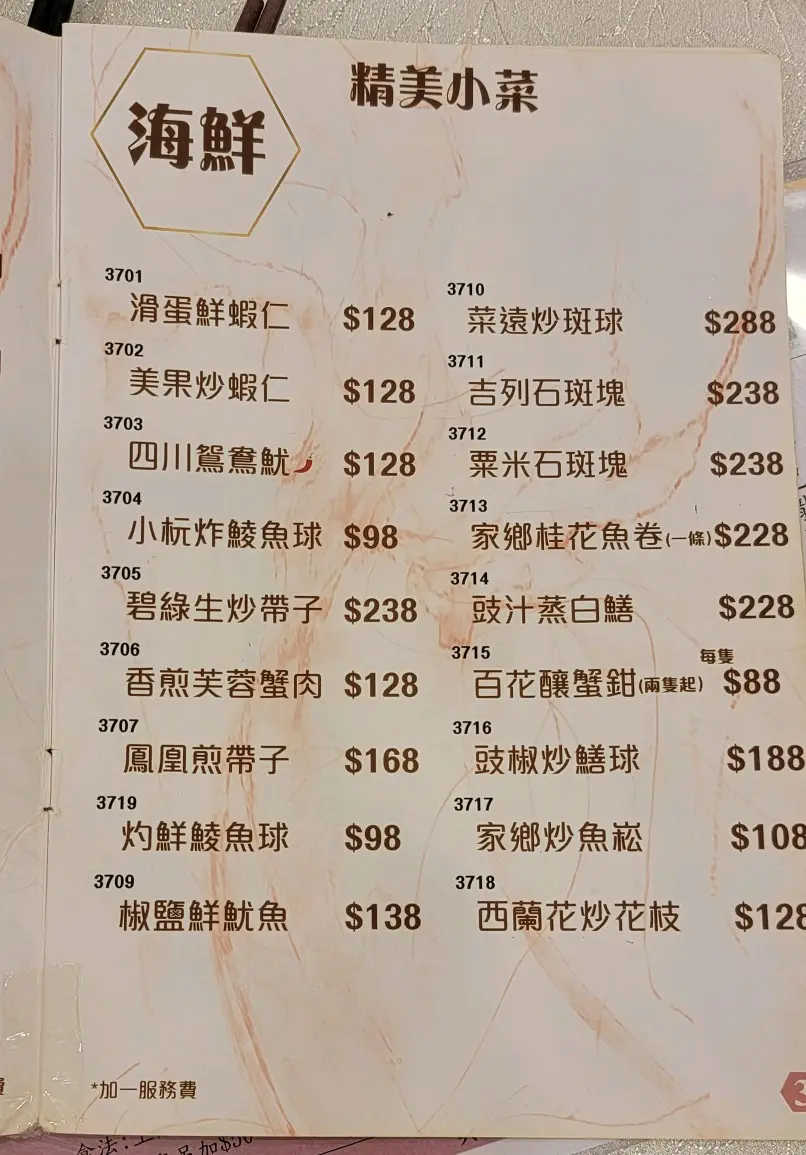 精美小菜
海鮮
3701
滑蛋鮮蝦仁 $128
3702
美果炒蝦仁 $128
3703
四川鴛鴦魷 $128
3704
小杬炸鯪魚球 $98
3705
碧綠生炒帶子 $238
3706
香煎芙蓉蟹肉 $128
3707
鳳凰煎帶子 $168
3719
灼鮮鯪魚球 $98
3709
椒鹽鮮魷魚 $138
3710
菜遠炒斑球 $288
3711
吉列石斑塊 $238
3712
粟米石斑塊 $238
3713
家鄉桂花魚卷(一條) $228
3714
豉汁蒸白鱔 $228
3715
每隻
百花釀蟹鉗(兩隻起) $88
3716
豉椒炒鱔球 $188
3717
家鄉炒魚崧 $108
3718
西蘭花炒花枝 $128
*加一服務費